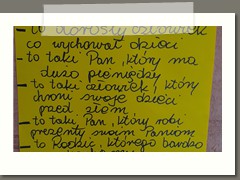 - to dorosły człowiek
co wychował dzieci
- to taki Pan, który ma
dużo pieniędzy
- to taki człowiek, który
chroni swoje dzieci
przed złem
- to taki Pan, który robi
prezenty swoim Paniom
- to Rodzic, którego bardzo